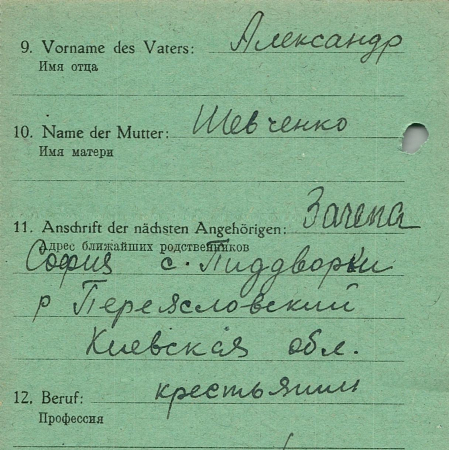 9. Vorname des Vaters: Александр
Имя отца
10. Name der Mutter: Шевченко
Имя матери
11. Anschrift der nächsten Angehörigen: Зачепа
Адрес ближайших родственников
София с. Пиддворки
р Переясловский
Киевская обл.
12. Beruf: крестьянин
Профессия